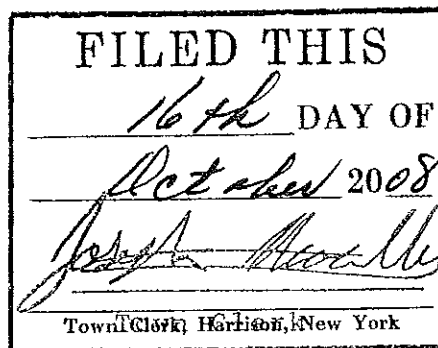 FILED THIS
16th DAY OF
October 2008
Joseph
Town Clerk, Harrison, New York